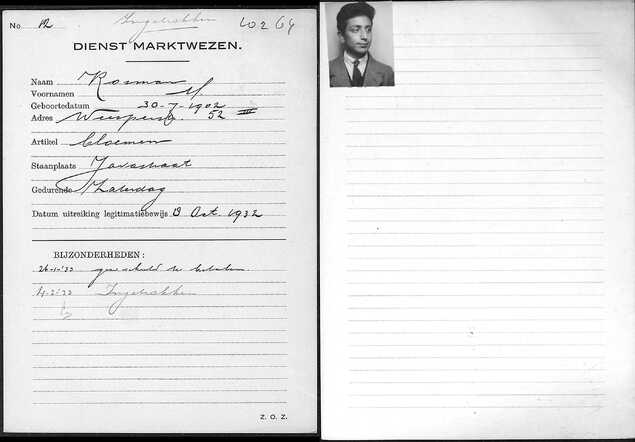 No 12 Ingetrokken 60269
DIENST MARKTWEZEN.
Naam Rosman
Voornamen M.
Geboortedatum 30-7-1902
Adres Weesperstr. 52 III
Artikel bloemen
Staanplaats Javastraat
Gedurende Zaterdag
Datum uitreiking legitimatiebewijs 13 Oct. 1932
BIJZONDERHEDEN:
26-1-'33 geen schuld te betalen
4-2-'33 Ingetrokken
Z. O. Z.